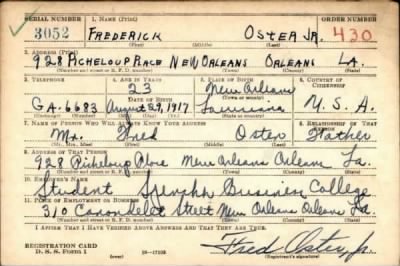 SERIAL NUMBER 1. NAME (Print) ORDER NUMBER
3052 FREDERICK OSTER JR. 430
(First) (Middle) (Last)
2. ADDRESS (Print)
928 PICHELOUP PLACE NEW ORLEANS ORLEANS LA.
(Number and street or R. F. D. number) (Town) (County) (State)
3. TELEPHONE 4. AGE IN YEARS 5. PLACE OF BIRTH 6. COUNTRY OF CITIZENSHIP
23 New Orleans
(Town or county)
DATE OF BIRTH
GA-6683 August 29, 1917 Louisiana U.S.A.
(Mo.) (Day) (Yr.) (State or country)
7. NAME OF PERSON WHO WILL ALWAYS KNOW YOUR ADDRESS 8. RELATIONSHIP OF THAT PERSON
Mr. Fred Oster Father
(Mr., Mrs., Miss) (First) (Middle) (Last)
9. ADDRESS OF THAT PERSON
928 Picheloup Place New Orleans Orleans La.
(Number and street or R. F. D. number) (Town) (County) (State)
10. EMPLOYER'S NAME
Student Business College
11. PLACE OF EMPLOYMENT OR BUSINESS
310 Street New Orleans Orleans La.
(Number and street or R. F. D. number) (Town) (County) (State)
I AFFIRM THAT I HAVE VERIFIED ABOVE ANSWERS AND THAT THEY ARE TRUE.
REGISTRATION CARD
D. S. S. Form 1 Fred Oster, Jr.
(Registrant's signature)